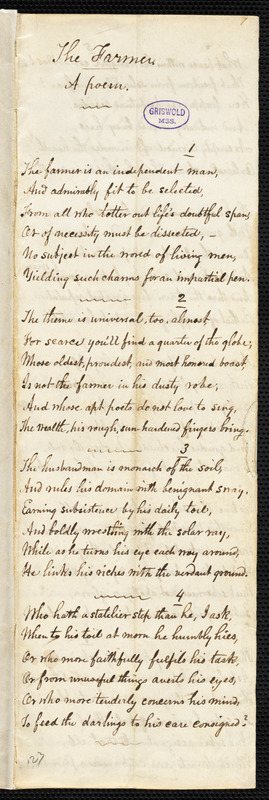 The Farmer.
A poem.
GRISWOLD
MSS.
1
The farmer is an independent man,
And admirably fit to be selected,
From all who totter out life's doubtful span,
Or of necessity must be dissected, –
No subject in the world of living men,
Yielding such charms for an impartial pen.
2
The theme is universal, too, almost
For scarce you'll find a quarter of the globe,
Whose oldest, proudest, and most honored boast,
Is not the farmer in his dusty robe,
And whose apt poets do not love to sing,
The wealth, his rough, sun-hardened fingers bring.
3
The husbandman is monarch of the soil,
And rules his domain with benignant sway,
Earning subsistence by his daily toil,
And boldly wrestling with the solar ray,
While as he turns his eye each way around,
He links his riches with the verdant ground.
4
Who hath a statelier step than he, I ask,
When to his toil at morn he humbly hies,
Or who more faithfully fulfils his task,
Or from unuseful things averts his eyes,
Or who more tenderly concerns his mind,
To feed the darlings to his care consigned?